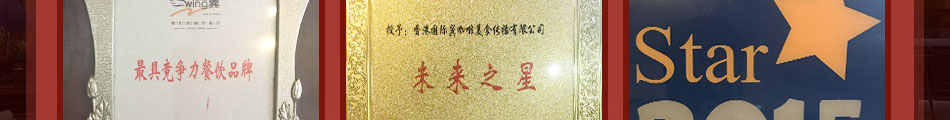 wing翼
最具竞争力餐饮品牌
授予:香港国际翼咖啡美食传播有限公司
未来之星
Star
2015